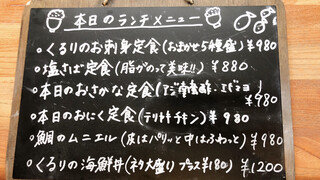 本日のランチメニュー
・くるりのお刺身定食(おまかせ5種盛)¥980
・塩さば定食(脂がのって美味!!)¥880
・本日のおさかな定食(アジ南蛮酢・エビマヨ)
¥980
・本日のおにく定食(テリヤキチキン)¥980
・鯛のムニエル(皮はパリッと中はふわっと)¥980
・くるりの海鮮丼(ネタ大盛り プラス¥180)¥1200